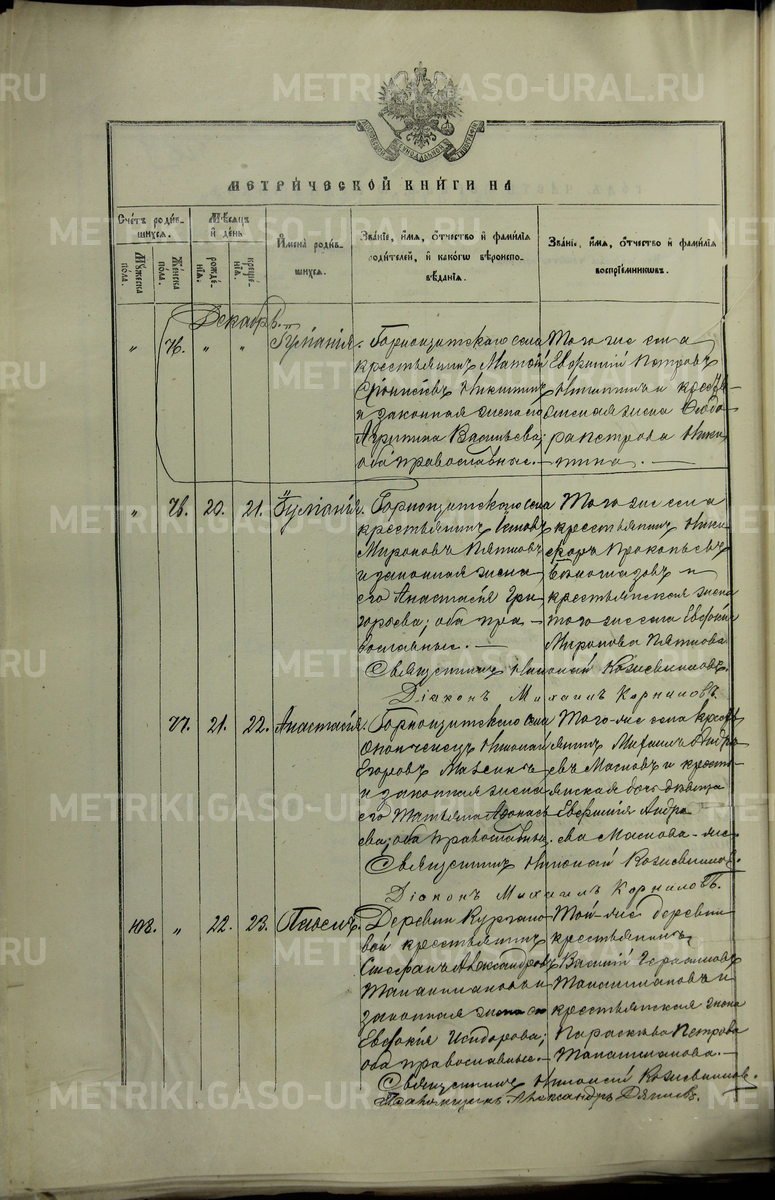 METRIKI.GASO-URAL.RU
МЕТРИ́ЧЕСКОЙ КНИ́ГИ НА
Сче́тъ роди́вшихся.
Му́жеска по́ла.
Же́нска по́ла.
Мѣ́сяцъ и҆ де́нь
рожде́нїя.
креще́нїя.
И҆мена̀ роди́вшихся.
Зва́нїе, и҆́мя, ѻ҆́тчество и҆ фами́лїя роди́телей, и҆ како́гѡ вѣроисповѣ́данїя.
Зва́нїе, и҆́мя, ѻ҆́тчество и҆ фами́лїя воспрїе́мникѡвъ.
Декабрь.
" 76. " " Іуліанія.
Горнощитскаго села
крестьянинъ
Никитинъ
и законная жена его
Агрипина Васильева;
оба православные.
Того же села
Евфимій Петровъ
Никитинъ и кресть-
янская жена
Петрова Ники-
тина.
" 76. 20. 21. Іуліанія.
Горнощитскаго села
крестьянинъ
Мироновъ Пятковъ
и законная жена
его Анастасія Гри-
горьева; оба пра-
вославные.
Того же села
крестьянинъ Ники-
форъ Прокопьевъ
и
крестьянская жена
того же села Евдокія
Миронова Пяткова
Священникъ Николай Кожевниковъ.
Діаконъ Михаилъ Корниловъ.
77. 21. 22. Анастасія.
Горнощитскаго села
Николай
Егоровъ
и законная жена
его Татьяна Афонась-
ева; оба православные.
Того-же села кресть-
янинъ Михаилъ Андре-
евъ Масловъ и кресть-
янская дочь девица
Евфимія Андре-
ева Маслова-же
Священникъ Николай Кожевниковъ.
Діаконъ Михаилъ Корниловъ.
102. " 22. 23. Павелъ.
Деревни Кургано-
вой крестьянинъ
Стефанъ Александровъ
и
законная жена его
Евдокія Исидорова;
оба православные.
Той-же деревни
крестьянинъ
Василій Герасимовъ
и
крестьянская жена
Параскева Петрова
Священникъ Николай Кожевниковъ.
Псаломщикъ Александръ